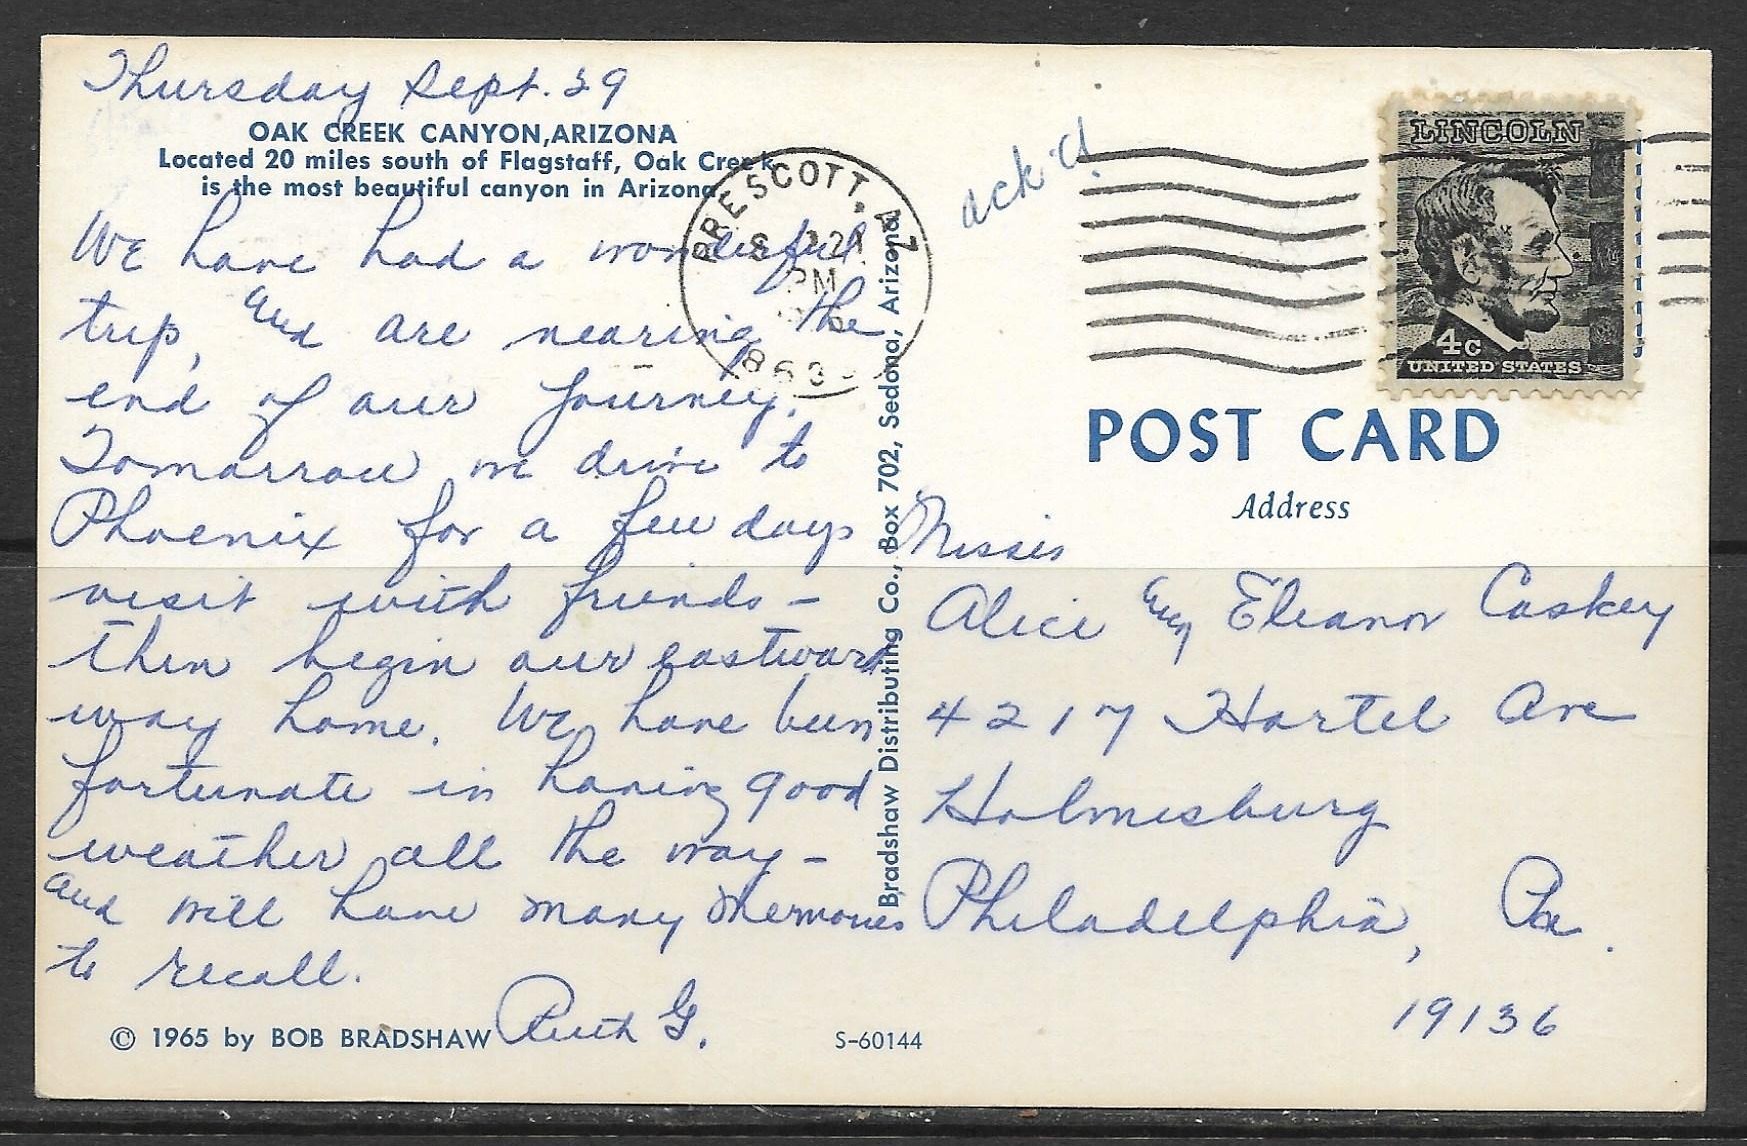 Thursday Sept. 29
OAK CREEK CANYON, ARIZONA
Located 20 miles south of Flagstaff, Oak Creek
is the most beautiful canyon in Arizona
We have had a wonderful
trip, and are nearing the
end of our journey.
Tomorrow we drive to
Phoenix for a few days
visit with friends –
then begin our eastward
way home. We have been
fortunate in having good
weather all the way –
and will have many memories
to recall.
Ruth G.
© 1965 by BOB BRADSHAW
S-60144
Bradshaw Distributing Co., Box 702, Sedona, Arizona
PRESCOTT, AZ
PM
863
ack'd
LINCOLN
4c
UNITED STATES
POST CARD
Address
Misses
Alice and Eleanor Caskey
4217 Hartel Ave
Holmesburg
Philadelphia, Pa.
19136